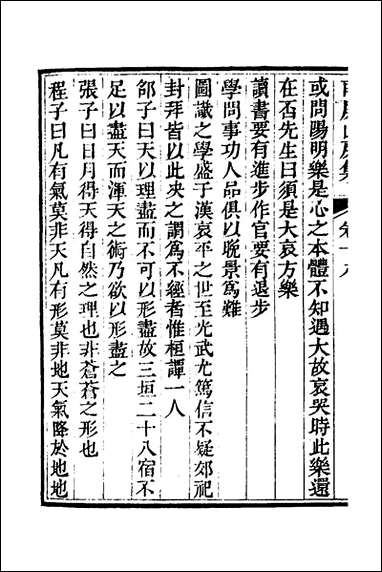 山房集 卷十
或問陽明樂是心之本體不知遇大故哀哭時此樂還
在否先生曰須是大哀方樂
讀書要有進步作官要有退步
學問事功人品俱以晚景爲難
圖讖之學盛于漢哀平之世至光武尤篤信不疑郊祀
封拜皆以此決之謂爲不經者惟桓譚一人
邵子曰天以理盡而不可以形盡故三垣二十八宿不
足以盡天而渾天之術乃欲以形盡之
張子曰日月得天得自然之理也非蒼蒼之形也
程子曰凡有氣莫非天凡有形莫非地天氣降於地地